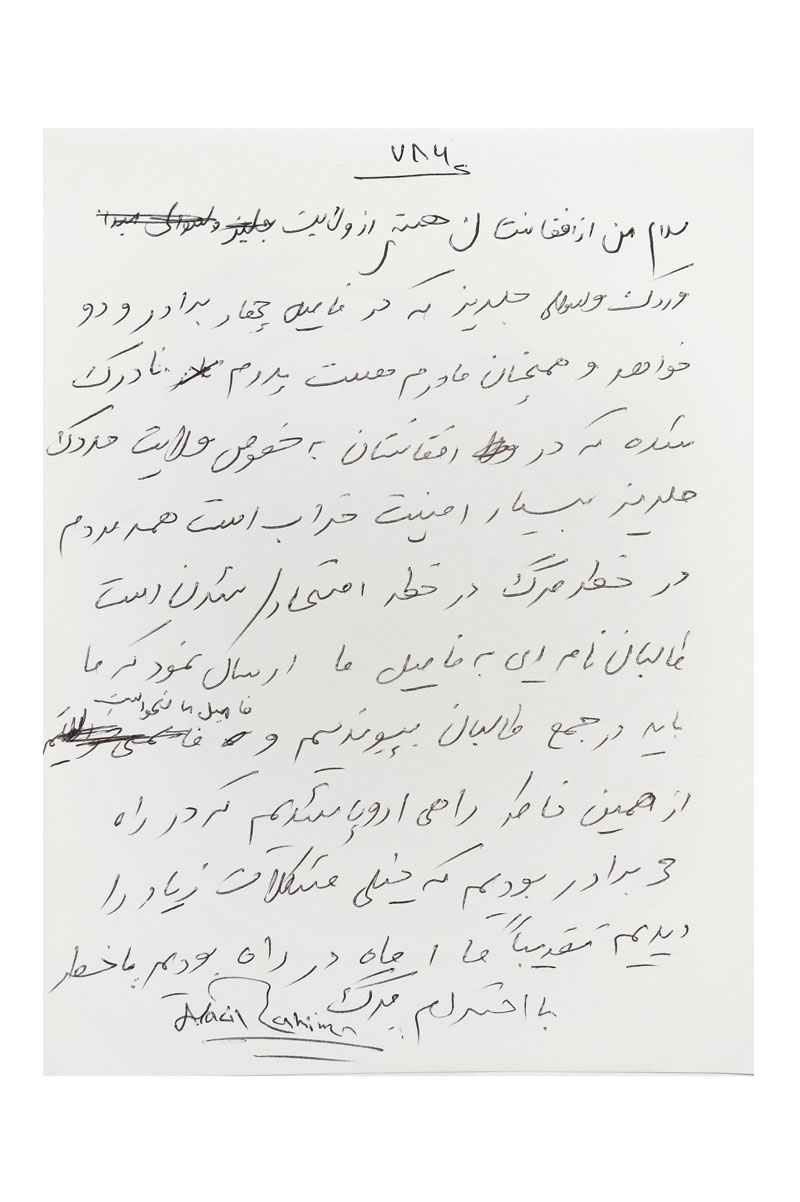 ۷۸۶
سلام من از افغانستان هستم از ولایت
وردک ولسوالی جلریز که در فامیل چهار برادر و دو
خواهر و همچنان مادرم هست پدرم نادرک
شده که در افغانستان به خصوص ولایت وردک
جلریز بسیار امنیت خراب است همه مردم
در خطر مرگ در خطر انتحار شدن است
طالبان نامه ای به فامیل ما ارسال نمود که ما
فامیل ما نخواست
باید در جمع طالبان بپیوندیم و
از همین خاطر راهی اروپا شدیم که در راه
3 برادر بودیم که خیلی مشکلات زیاد را
دیدیم تقریباً ما ۱ ماه در راه بودیم با خطر
مرگ
با احترام